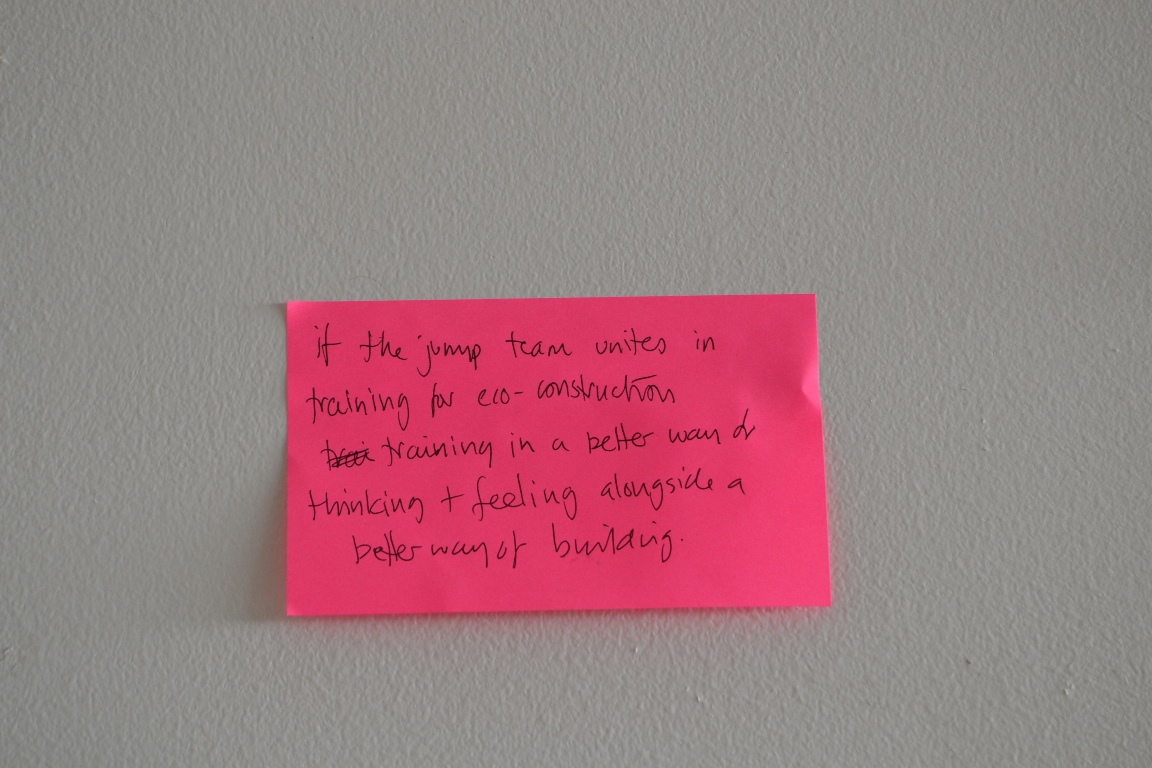 if the jump team unites in
training for eco-construction
training in a better way of
thinking + feeling alongside a
better way of building.